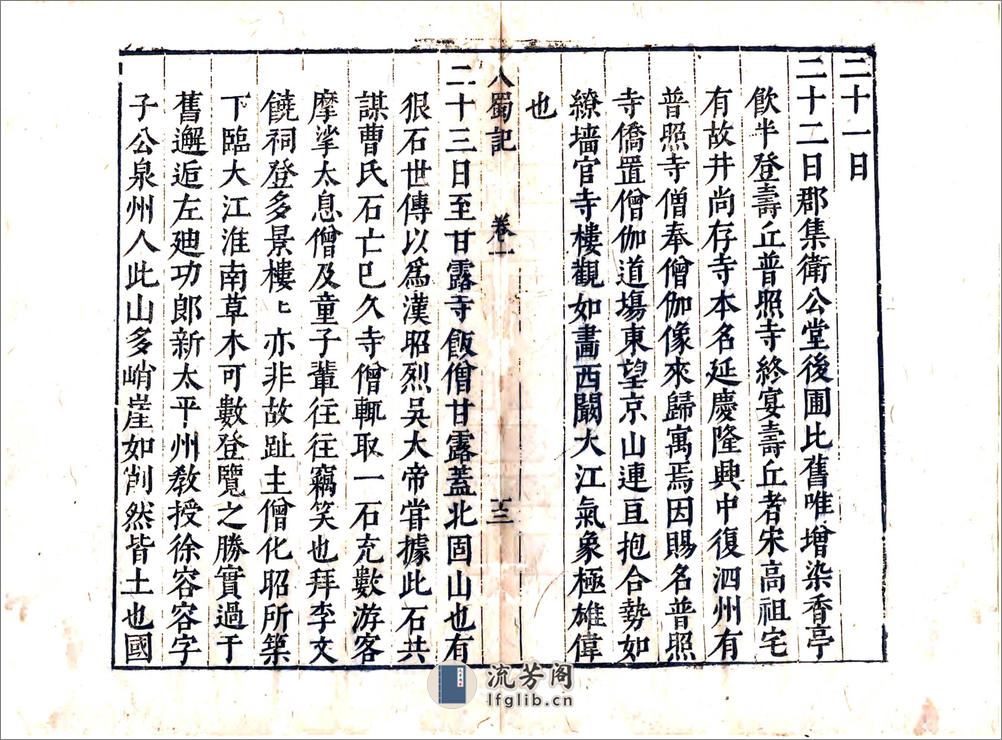 二十一日
二十二日郡集衛公堂後圃比舊唯增染香亭
飮半登壽丘普照寺終宴壽丘者宋高祖宅
有故井尚存寺本名延慶隆興中復泗州有
普照寺僧奉僧伽像來歸寓焉因賜名普照
寺僑置僧伽道塲東望京山連亘抱合勢如
繚墻官寺樓觀如畵西闞大江氣象極雄偉
也
入蜀記 卷一 十三
二十三日至甘露寺飯僧甘露蓋北固山也有
狠石世傳以爲漢昭烈吳大帝甞據此石共
謀曹氏石亡已久寺僧輒取一石充數游客
摩挲太息僧及童子輩往往竊笑也拜李文
饒祠登多景樓〻亦非故趾主僧化昭所築
下臨大江淮南草木可數登覽之勝實過于
舊邂逅左廸功郎新太平州敎授徐容容字
子公泉州人此山多峭崖如削然皆土也國
流芳阁
lfglib.cn